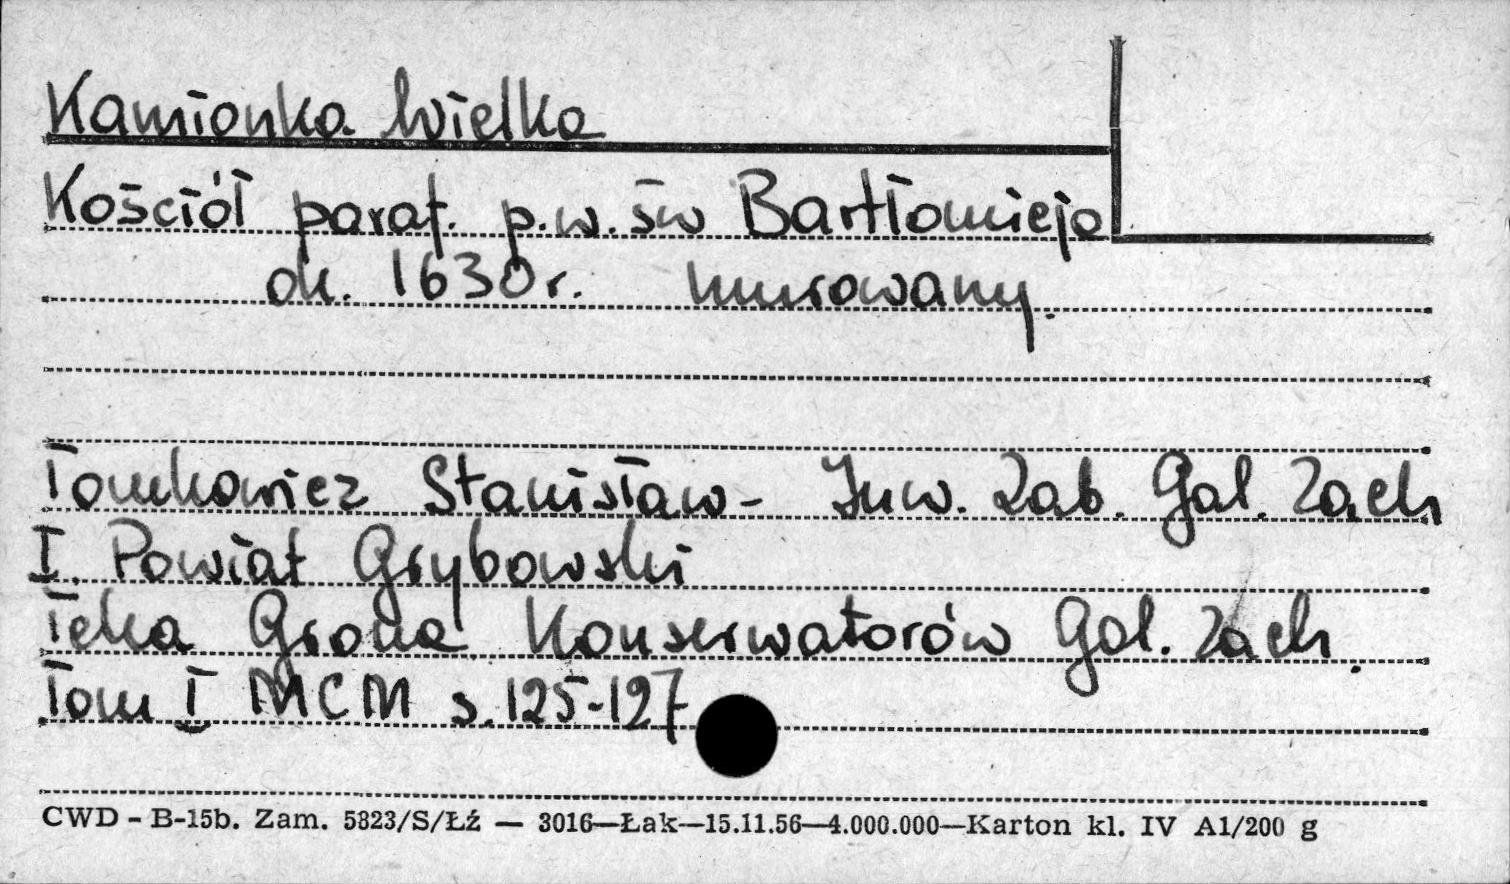 Kamionka Wielka
Kościół paraf. p.w. św Bartłomieja
ok. 1630r. murowany.
Tomkowicz Stanisław - Inw. Zab. Gal. Zach
I. Powiat Grybowski
Teka Grona Konserwatorów Gal. Zach.
Tom I MCM s. 125-127
CWD - B-15b. Zam. 5823/S/Łź — 3016—Łak—15.11.56—4.000.000—Karton kl. IV A1/200 g